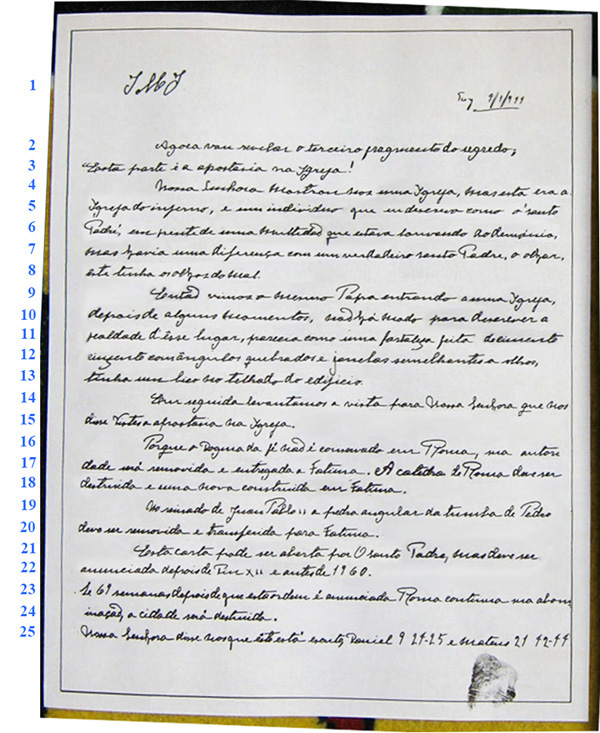 1
J M J
Tuy 1/4/1944
2
Agora vou revelar o terceiro fragmento do segredo;
3
"Esta parte é a apostasia na Igreja!
4
Nossa Senhora mostrou nos uma Igreja, mas esta era a
5
Igreja do inferno, e um individuo que eu descrevo como o 'santo
6
Padre', em frente de uma multidão que estava louvando ao Demónio,
7
mas havia uma diferença com um verdadeiro santo Padre, o olhar,
8
este tinha os olhos do mal.
9
Então vimos o mesmo Papa entrando a uma Igreja,
10
depois de alguns momentos, não há modo para descrever a
11
fealdade d'esse lugar, parecia como uma fortaleza feita de cimento
12
cinzento com ângulos quebrados e janelas semelhantes a olhos,
13
tinha um bico no telhado do edificio.
14
Em seguida levantamos a vista para Nossa Senhora que nos
15
disse Vistes a apostasia na Igreja.
16
Porque o Dogma da fé não é conservado em Roma, sua autori
17
dade será removida e entregada a Fatima. A catedral de Roma deve ser
18
destruida e uma nova construida em Fatima.
19
No reinado de Juan Pablo II a pedra angular da tumba de Pedro
20
deve ser removida e transferida para Fatima.
21
Esta carta pode ser aberta por O santo Padre, mas deve ser
22
anunciada depois de Pio XII e antes de 1960.
23
Se 69 semanas depois de que esta ordem é anunciada Roma continua sua abom
24
inação, a cidade será destruida.
25
Nossa Senhora disse nos que isto está escrito, Daniel 9 24-25 e Mateus 21 42-44